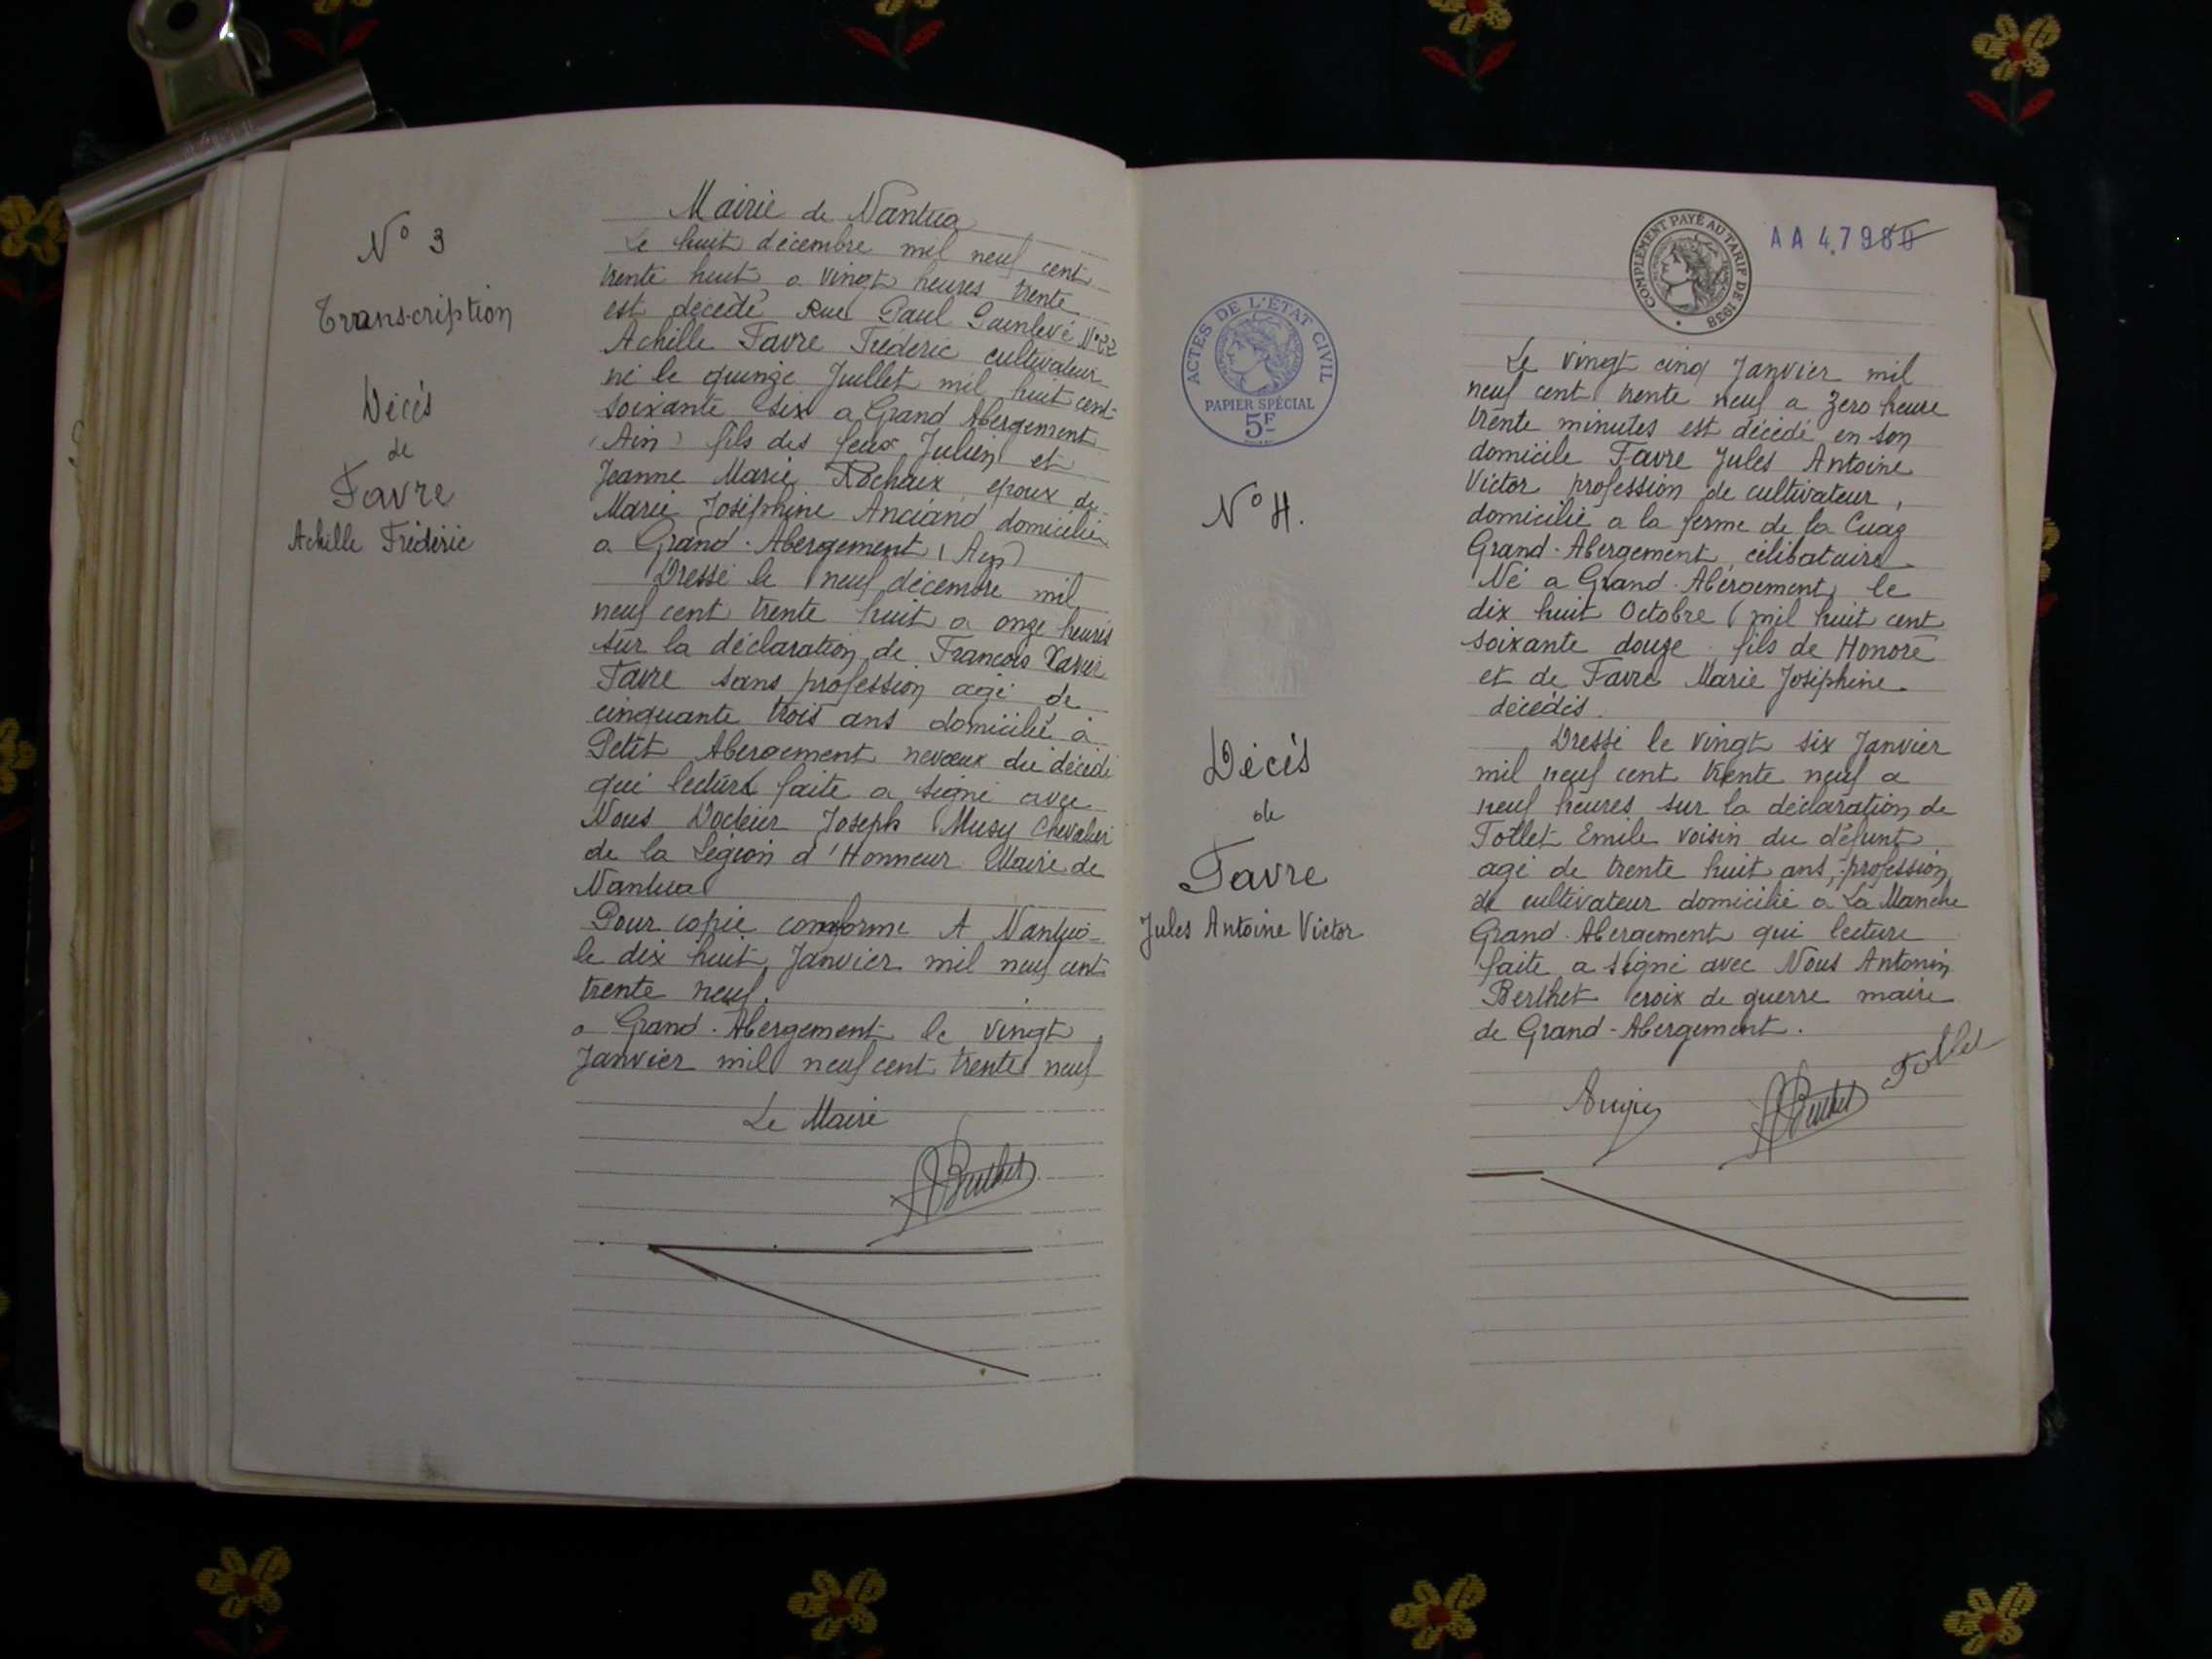 N° 3
Transcription
Décès
de
Favre
Achille Frédéric
Mairie de Nantua
Le huit décembre mil neuf cent
trente huit a vingt heures trente
est décédé Rue Paul Painlevé N° 22
Achille Favre Fréderic cultivateur
né le quinze Juillet mil huit cent
soixante six a Grand Abergement
(Ain) fils des feus Julien et
Jeanne Marie Rochaix, epoux de
Marie Joséphine Anciand domicilié
a Grand-Abergement (Ain)
Dressé le neuf décembre mil
neuf cent trente huit a onze heures
sur la déclaration de François Xavier
Favre sans profession agé de
cinquante trois ans domicilié à
Petit Abergement neveux du décédé
qui lecture faite a signé avec
Nous Docteur Joseph Musy Chevalier
de la Légion d'Honneur Maire de
Nantua
Pour copie conforme A Nantua
le dix huit Janvier mil neuf cent
trente neuf.
a Grand-Abergement le vingt
Janvier mil neuf cent trente neuf
Le Maire
ABerthet
ACTES DE L'ÉTAT CIVIL
PAPIER SPÉCIAL
5F
N° 4.
Décès
de
Favre
Jules Antoine Victor
COMPLÉMENT PAYÉ AU TARIF DE 1938
AA 47980
Le vingt cinq Janvier mil
neuf cent trente neuf a Zero heure
trente minutes est décédé en son
domicile Favre Jules Antoine
Victor profession de cultivateur,
domicilié a la ferme de la Cuaz
Grand-Abergement, célibataire
Né a Grand-Abergement le
dix huit Octobre mil huit cent
soixante douze fils de Honoré
et de Favre Marie Joséphine
décédés.
Dressé le vingt six Janvier
mil neuf cent trente neuf a
neuf heures sur la déclaration de
Tollet Emile voisin du défunt
agé de trente huit ans, profession
de cultivateur domicilié a La Manche
Grand-Abergement qui lecture
faite a signé avec Nous Antonin
Berthet croix de guerre maire
de Grand-Abergement.
Tollet
ABerthet